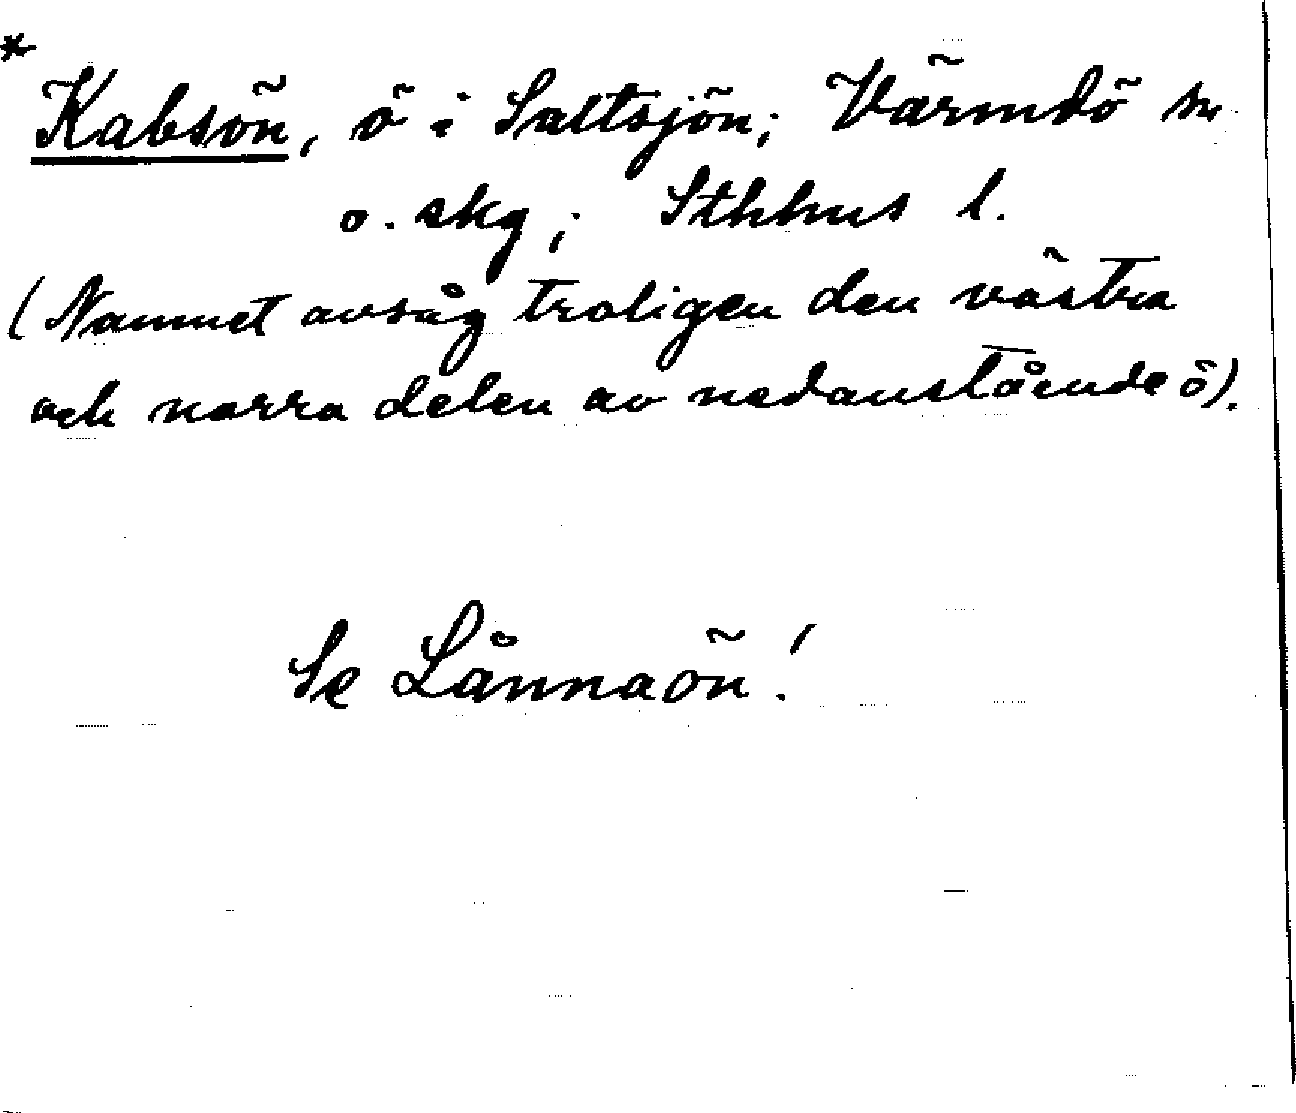 * Kabsön, ö i Saltsjön; Värmdö sn
o. skg; Sthhus l.
(Namnet avsåg troligen den västra
och norra delen av nedanstående ö).
Se Lånnaön!